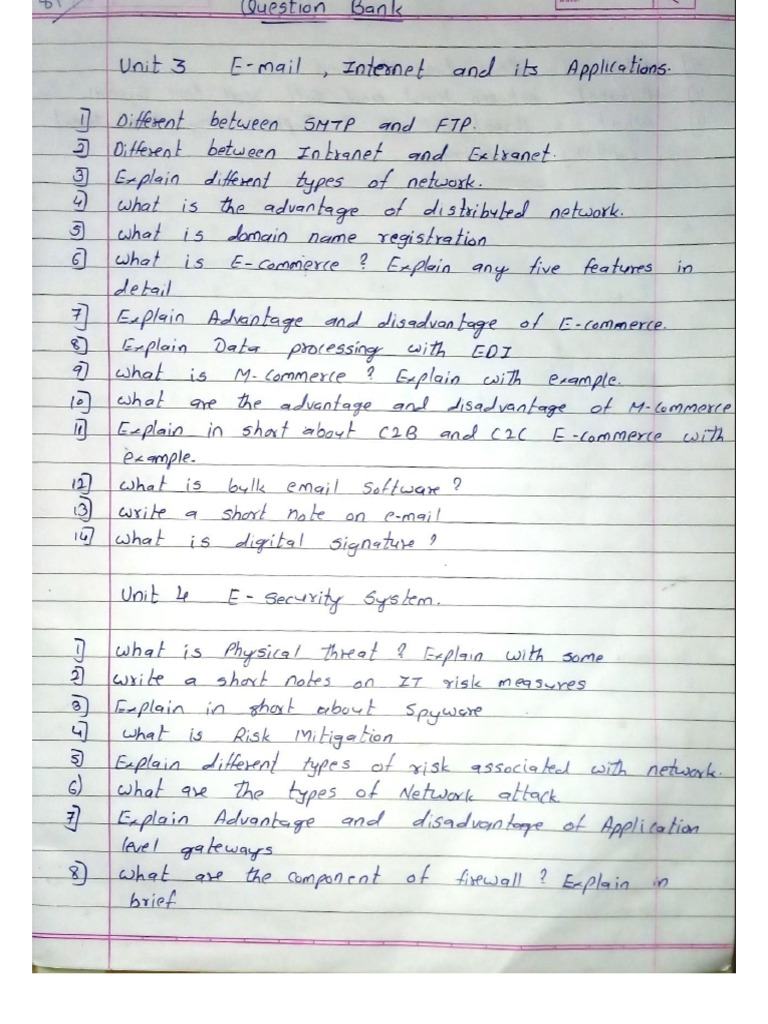 Question Bank
Unit 3 E-mail , Internet and its Applications.
1] Different between SMTP and FTP.
2] Different between Intranet and Extranet.
3] Explain different types of network.
4] What is the advantage of distributed network.
5] What is domain name registration
6] What is E-commerce ? Explain any five features in
detail
7] Explain Advantage and disadvantage of E-commerce.
8] Explain Data processing with EDI
9] What is M-Commerce ? Explain with example.
10] What are the advantage and disadvantage of M-Commerce
11] Explain in short about C2B and C2C E-commerce with
example.
12] What is bulk email software ?
13] Write a short note on e-mail
14] What is digital signature ?
Unit 4 E-Security System.
1] What is Physical threat ? Explain with some
2] Write a short notes on IT risk measures
3] Explain in short about Spyware
4] What is Risk Mitigation
5] Explain different types of risk associated with network.
6) What are the types of Network attack
7] Explain Advantage and disadvantage of Application
level gateways
8) What are the component of firewall ? Explain in
brief